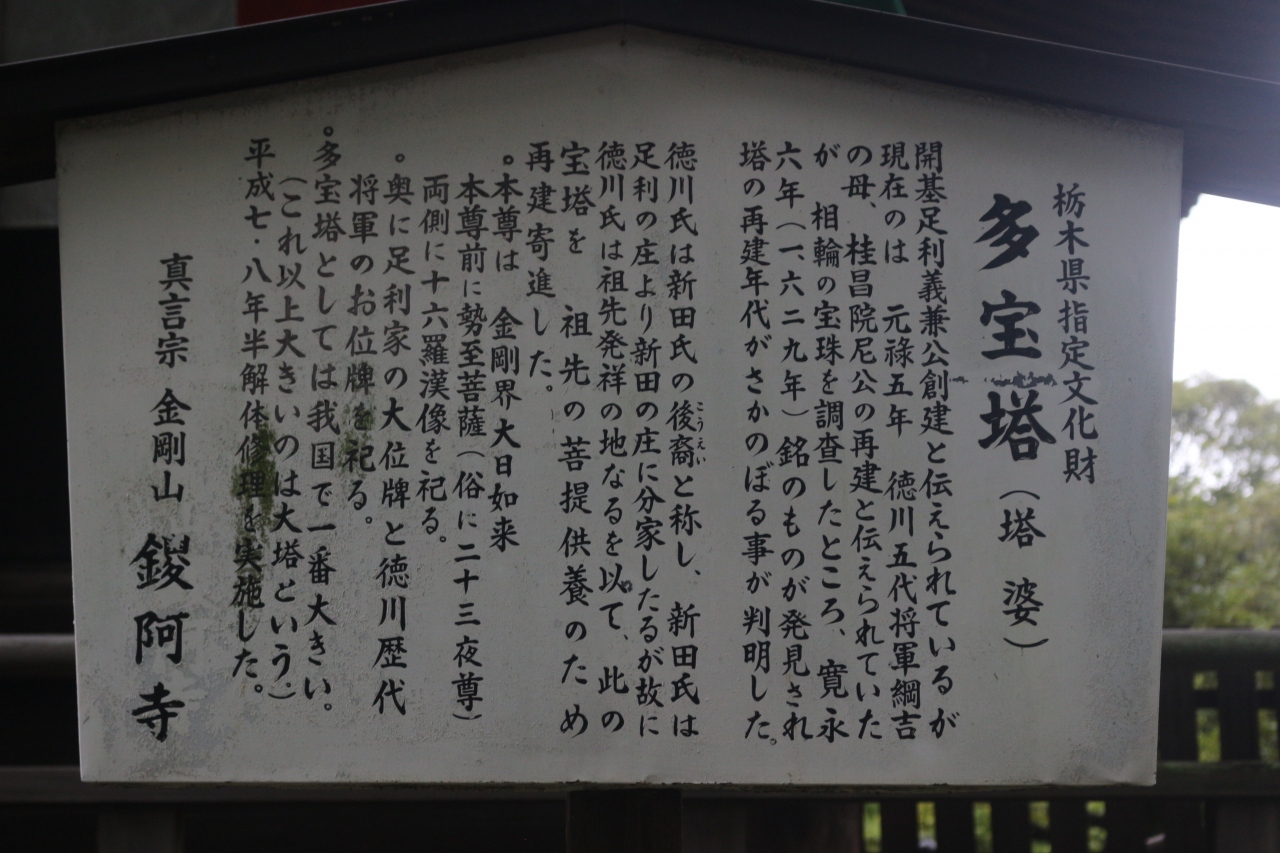 栃木県指定文化財
多宝塔（塔婆）
開基足利義兼公創建と伝えられているが
現在のは 元禄五年 徳川五代将軍綱吉
の母、桂昌院尼公の再建と伝えられていた
が 相輪の宝珠を調査したところ、寛永
六年（一、六二九年）銘のものが発見され
塔の再建年代がさかのぼる事が判明した。
徳川氏は新田氏の後裔と称し、新田氏は
こうえい
足利の庄より新田の庄に分家したるが故に
徳川氏は祖先発祥の地なるを以て、此の
宝塔を 祖先の菩提供養のため
再建寄進した。
。本尊は 金剛界大日如来
本尊前に勢至菩薩（俗に二十三夜尊）
両側に十六羅漢像を祀る。
。奥に足利家の大位牌と徳川歴代
将軍のお位牌を祀る。
。多宝塔としては我国で一番大きい。
（これ以上大きいのは大塔という）
平成七・八年半解体修理を実施した。
真言宗 金剛山 鑁阿寺